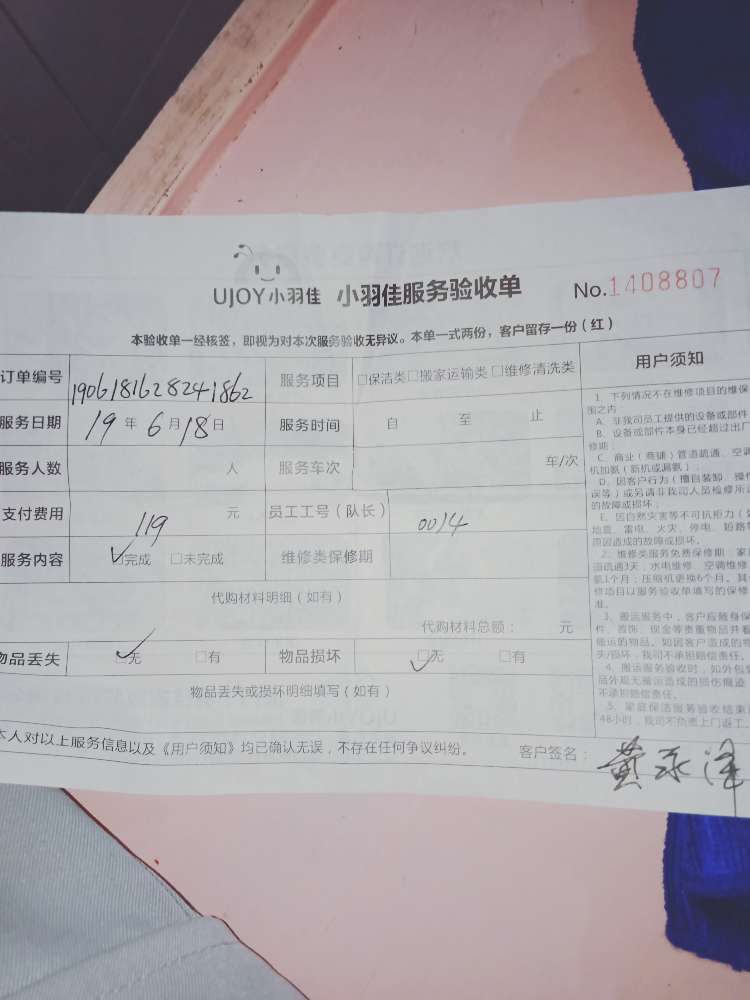 UJOY小羽佳 小羽佳服务验收单 No.1408807
本验收单一经核签,即视为对本次服务验收无异议。本单一式两份,客户留存一份(红)
订单编号 1906181628241862 服务项目 □保洁类□搬家运输类 □维修清洗类
服务日期 19 年 6 月 18 日 服务时间 自 至 止
服务人数 人 服务车次 车/次
支付费用 119 元 员工工号(队长) 0014
服务内容 ☑完成 □未完成 维修类保修期
代购材料明细(如有)
代购材料总额: 元
物品丢失 ☑无 □有 物品损坏 ☑无 □有
物品丢失或损坏明细填写(如有)
本人对以上服务信息以及《用户须知》均已确认无误,不存在任何争议纠纷。 客户签名: 黄永泽
用户须知
1、下列情况不在维修项目的维保
围之内
A、非我司员工提供的设备或部件
B、设备或部件本身已经超过出厂
修期;
C、商业(商铺)管道疏通、空调
机加氨(新机或漏氨);
D、因客户行为(擅自装卸、操作
误等)或另请非我司人员检修所造
的故障或损坏;
E、因自然灾害等不可抗拒力(如
地震、雷电、火灾、停电、短路等
原因造成的故障或损坏。
2、维修类服务免费保修期:家
道疏通3天;水电维修、空调维修
氨1个月;压缩机更换6个月。其
修项目以服务验收单填写的保修
准。
3、搬运服务中,客户应随身保
件、首饰、现金等贵重物品并看
能运的物品。如因客户造成的物
失/损坏,我司不承担赔偿责任。
4、搬运服务验收时,如外包装
品外观无搬运造成的损伤痕迹
不承担赔偿责任。
5、家庭保洁服务验收结束后
48小时,我司不负责上门返工。